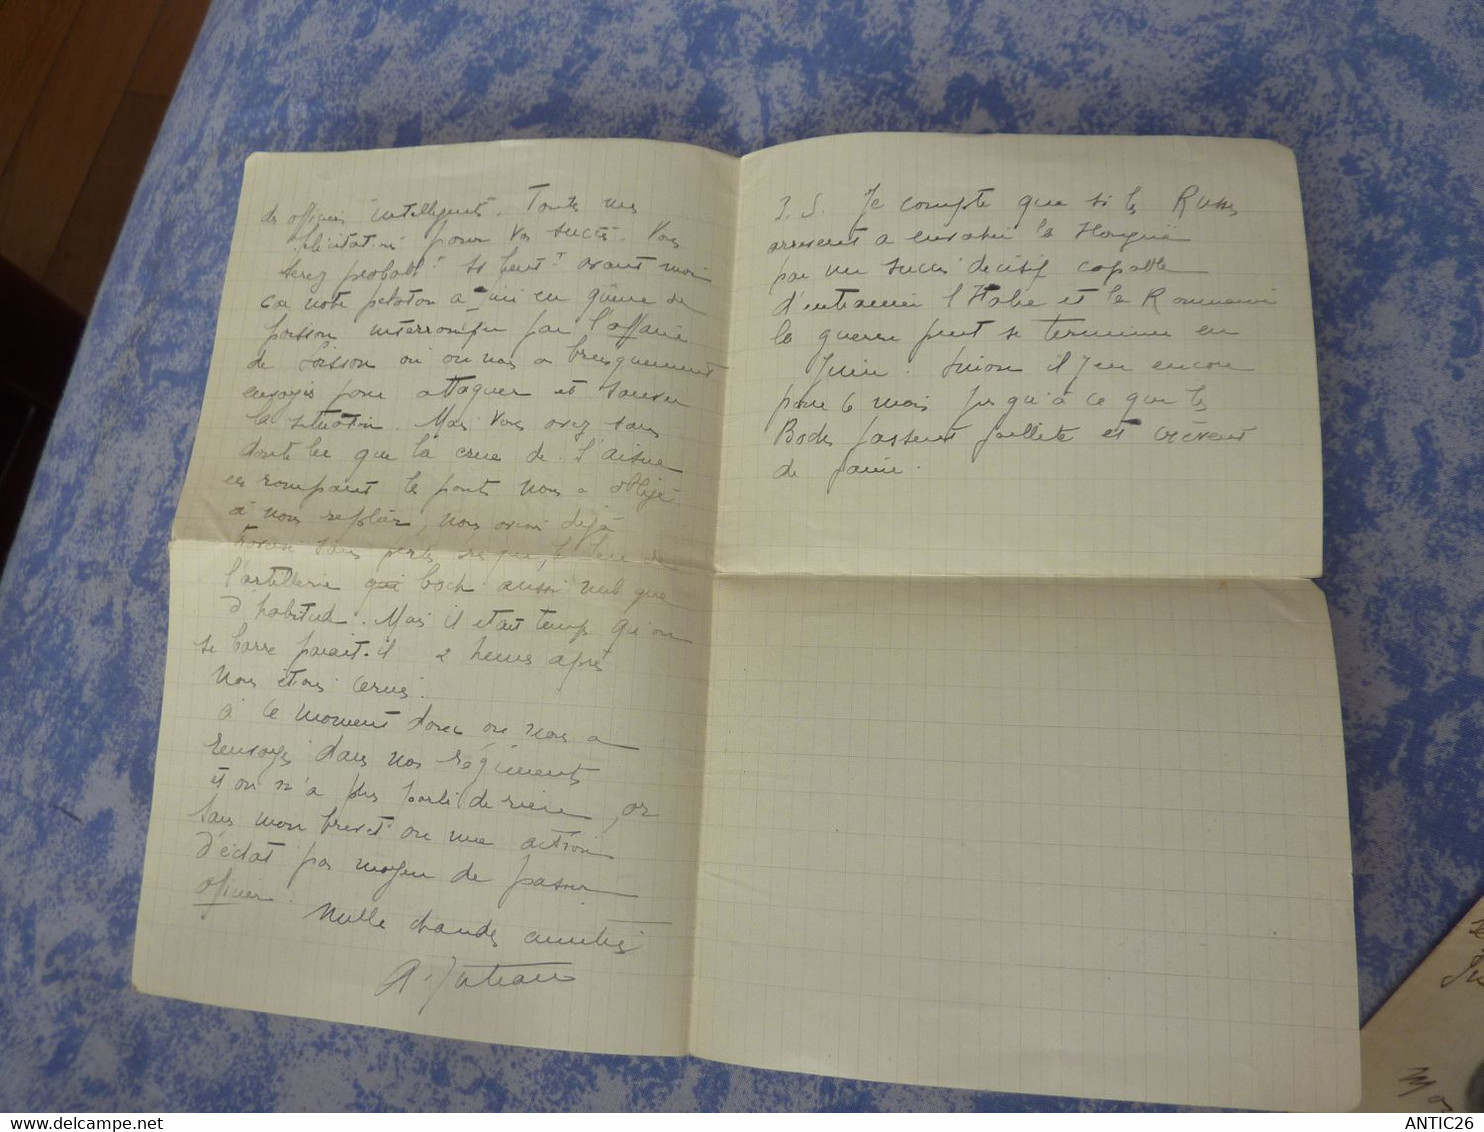 de officiers intelligents. Toutes mes
félicitations pour vos succès. Vous
serez probablt s/s lieutt avant moi
car notre peloton a fini en queue de
poisson interrompu par l'affaire
de Soisson où on nous a brusquement
envoyés pour attaquer et sauver
la situation. Mais vous avez sans
doute lu que la crue de l'aisne
en rompant les ponts nous a obligé
à nous replier, nous avions déjà
traversé sans perte presque, le feu de
l'artillerie qui boch aussi mal que
d'habitude. Mais il était temps qu'on
se barre parait-il 2 heures après
nous étions cernés.
à ce moment donc on nous a
renvoyés dans nos régiments
et on n'a plus parlé de rien, or
sans mon brevet ou une action
d'éclat pas moyen de passer
officier.
Mille chaudes amitiés
P.S. Je compte que si les Russes
arrivent a envahir la Hongrie
par un succès décisif capable
d'entrainer l'Italie et la Roumanie
la guerre peut se terminer en
Juin. Sinon il y en encore
pour 6 mois jusqu'à ce que les
Boches fassent faillite et crèvent
de faim.
ANTIC26